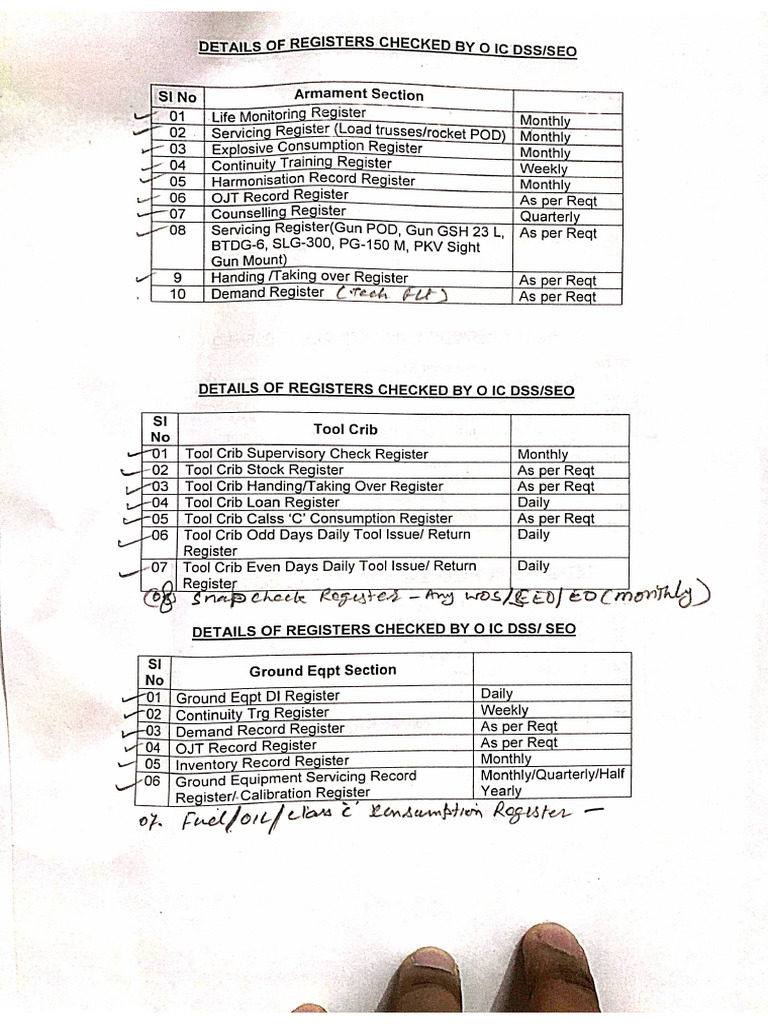 DETAILS OF REGISTERS CHECKED BY O IC DSS/SEO
Sl No Armament Section
01 Life Monitoring Register Monthly
02 Servicing Register (Load trusses/rocket POD) Monthly
03 Explosive Consumption Register Monthly
04 Continuity Training Register Weekly
05 Harmonisation Record Register Monthly
06 OJT Record Register As per Reqt
07 Counselling Register Quarterly
08 Servicing Register(Gun POD, Gun GSH 23 L, As per Reqt
BTDG-6, SLG-300, PG-150 M, PKV Sight
Gun Mount)
9 Handing /Taking over Register As per Reqt
10 Demand Register (Tech Flt) As per Reqt
DETAILS OF REGISTERS CHECKED BY O IC DSS/SEO
Sl
No Tool Crib
01 Tool Crib Supervisory Check Register Monthly
02 Tool Crib Stock Register As per Reqt
03 Tool Crib Handing/Taking Over Register As per Reqt
04 Tool Crib Loan Register Daily
05 Tool Crib Calss ‘C’ Consumption Register As per Reqt
06 Tool Crib Odd Days Daily Tool Issue/ Return Daily
Register
07 Tool Crib Even Days Daily Tool Issue/ Return Daily
Register
(08) Snap check Register – Any WOS/EEO/EO (monthly)
DETAILS OF REGISTERS CHECKED BY O IC DSS/ SEO
Sl
No Ground Eqpt Section
01 Ground Eqpt DI Register Daily
02 Continuity Trg Register Weekly
03 Demand Record Register As per Reqt
04 OJT Record Register As per Reqt
05 Inventory Record Register Monthly
06 Ground Equipment Servicing Record Monthly/Quarterly/Half
Register/ Calibration Register Yearly
07. Fuel/OIL/Class 'C' Consumption Register –